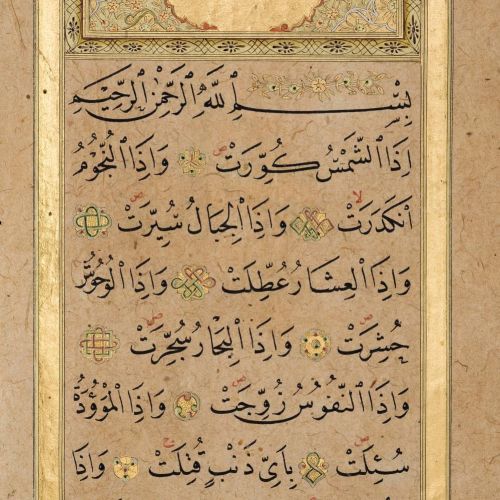 بِسْمِ ٱللَّهِ ٱلرَّحْمٰنِ ٱلرَّحِيمِ
اِذَا الشَّمْسُ كُوِّرَتْ ص وَاِذَا النُّجُوْمُ
انْكَدَرَتْ لا وَاِذَا الْجِبَالُ سُيِّرَتْ ص
وَاِذَا الْعِشَارُ عُطِّلَتْ ص وَاِذَا الْوُحُوْشُ
حُشِرَتْ ص وَاِذَا الْبِحَارُ سُجِّرَتْ ص
وَاِذَا النُّفُوْسُ زُوِّجَتْ ص وَاِذَا الْمَوْؤُدَةُ
سُئِلَتْ ص بِاَىِّ ذَنْبٍ قُتِلَتْ ج وَاِذَا